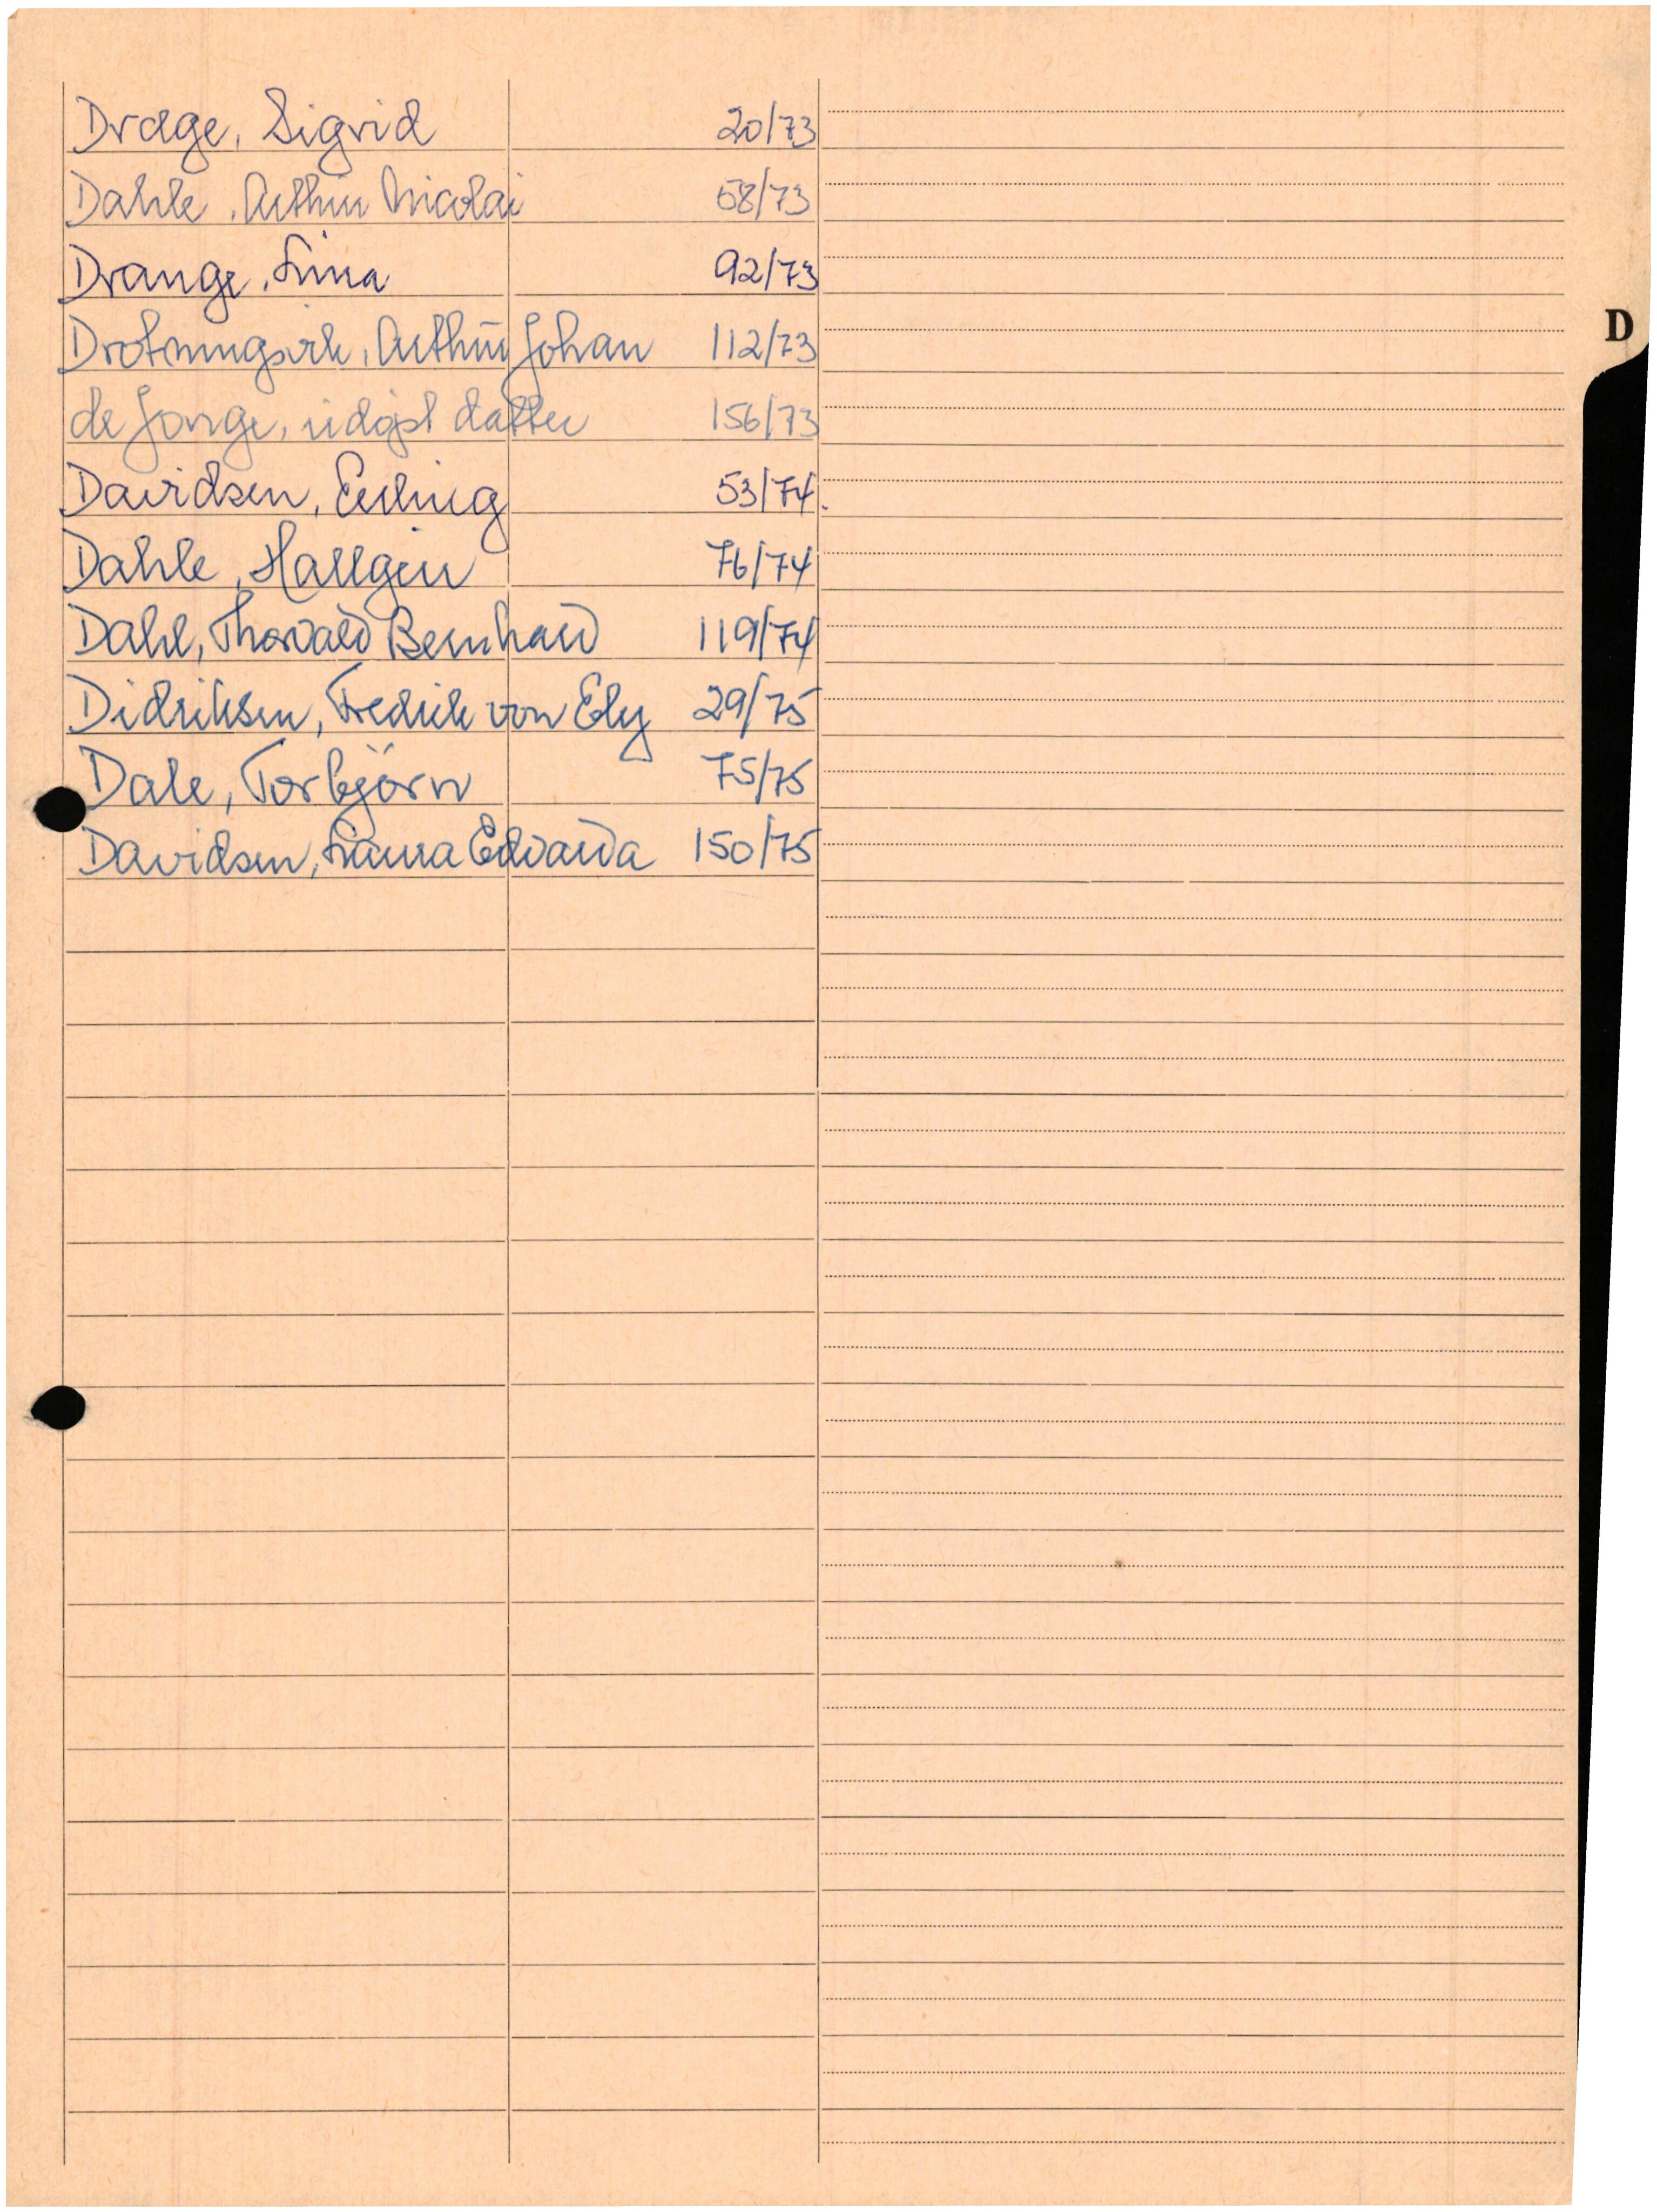 Dræge, Sigrid 20/73
Dahle, Arthur Nicolai 58/73
Drange, Lina 92/73
Drotningsvik, Arthur Johan 112/73
de Jonge, udøpt datter 156/73
Davidsen, Erling 53/74.
Dahle, Hallgeir 76/74
Dahl, Thorvald Bernhard 119/74
Didriksen, Fredrik von Ely 29/75
Dale, Torbjörn 75/75
Davidsen, Laura Edvarda 150/75
D